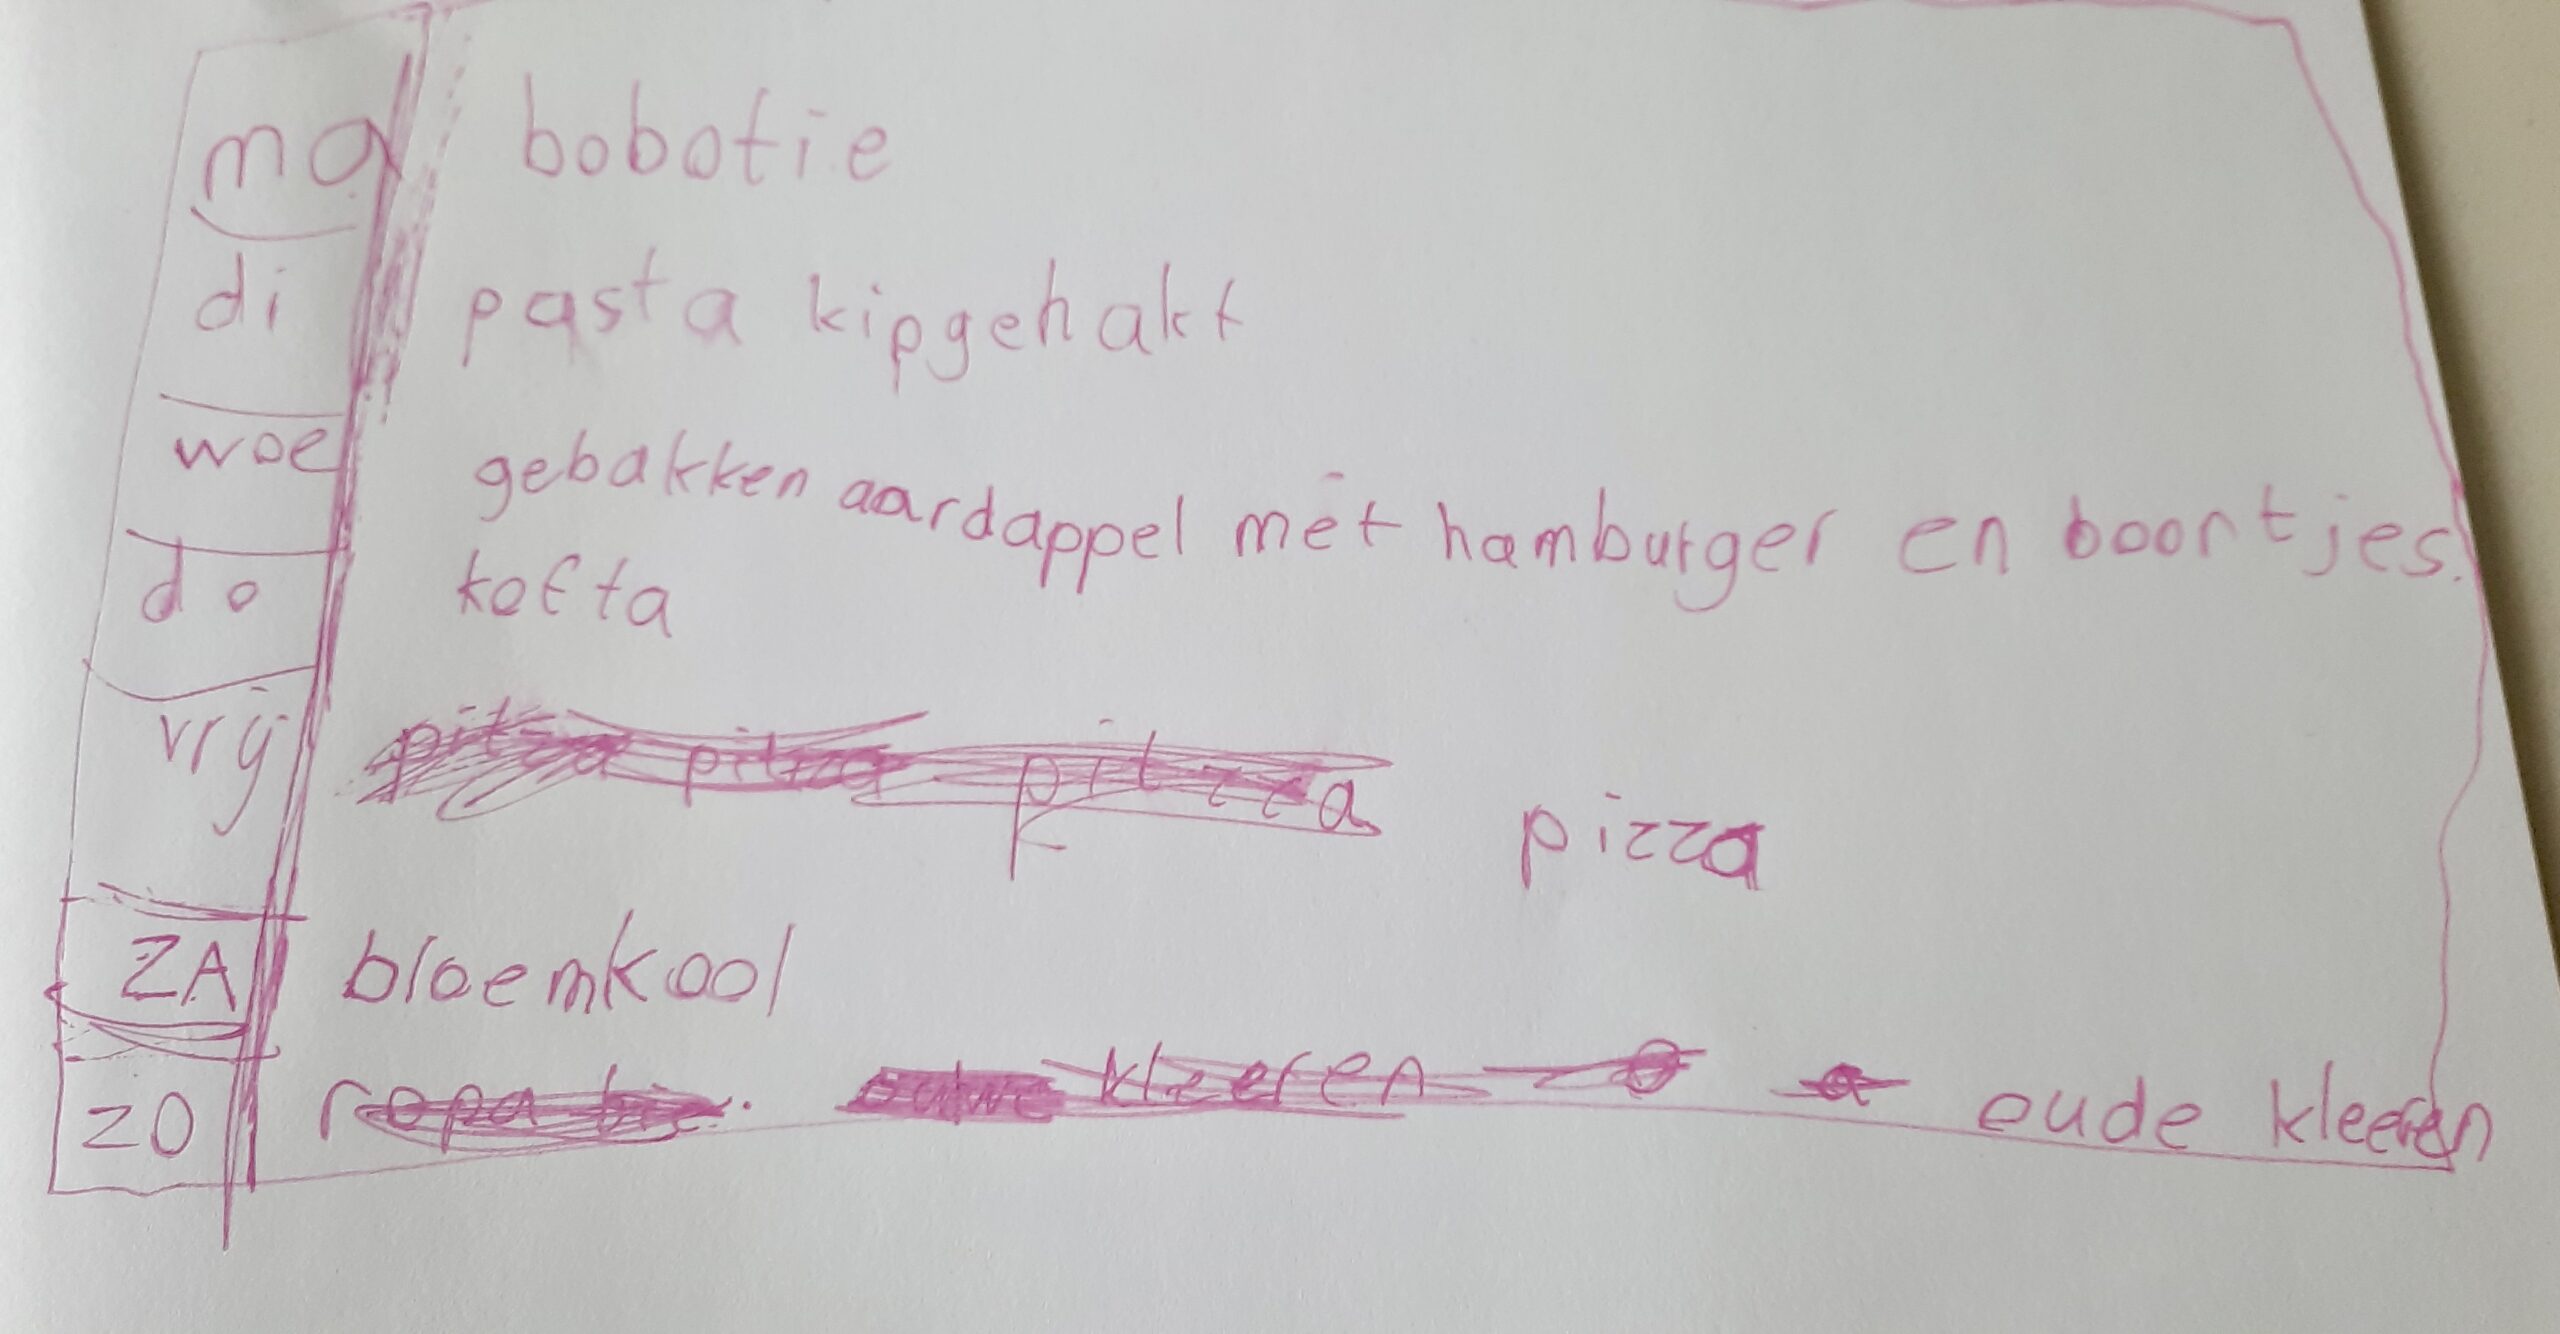 ma bobotie
di pasta kipgehakt
woe gebakken aardappel met hamburger en boontjes.
do kofta
vrij pitza pitza pitzza pizza
ZA bloemkool
ZO ropa kleeren oude kleeren